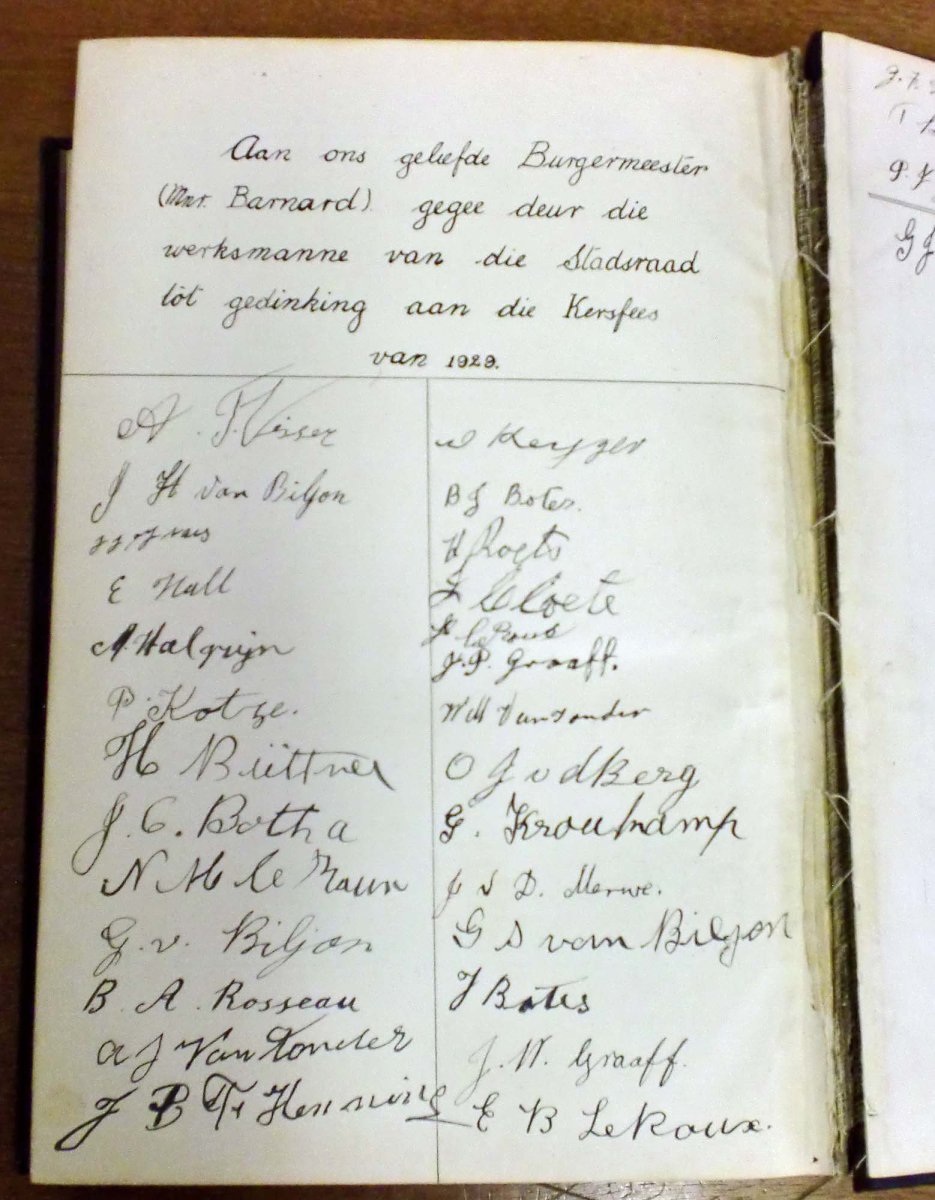 Aan ons geliefde Burgermeester
(Mnr. Barnard) gegee deur die
werksmanne van die Stadsraad
tot gedinking aan die Kersfees
van 1929.
A. P. Visser
J H van Biljon
E Hall
A. Walquyn
P. Kotze.
H Büttner
J. C. Botha
N M le
G. v. Biljon
B. A. Rosseau
A J Van Tonder
J P T. Henning
Keyzer
B J Botes.
H Rogts
J Cloete
le Roux
J. P. Graaff.
W M Van Tonder
O J v d Berg
G. Kroukamp
J V D. Merwe.
G S van Biljon
J Botes
J. W. Graaff.
E B LeRoux.
P. J
G J